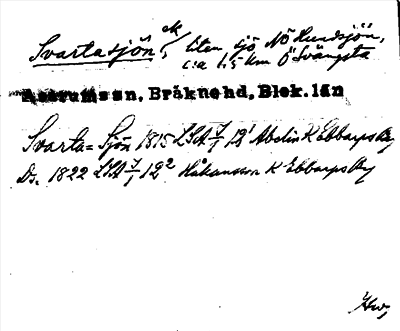 Svartasjön, ek liten sjö NÖ Hundsjön,
c:a 1,5 km Ö Svängsta
Asarums sn, Bräkne hd, Blek. län
Svarta= Sjön 1815 LSA 12¹ Abelin K Ebbarps By
Ds. 1822 LSA 12² Håkansson K Ebbarps By